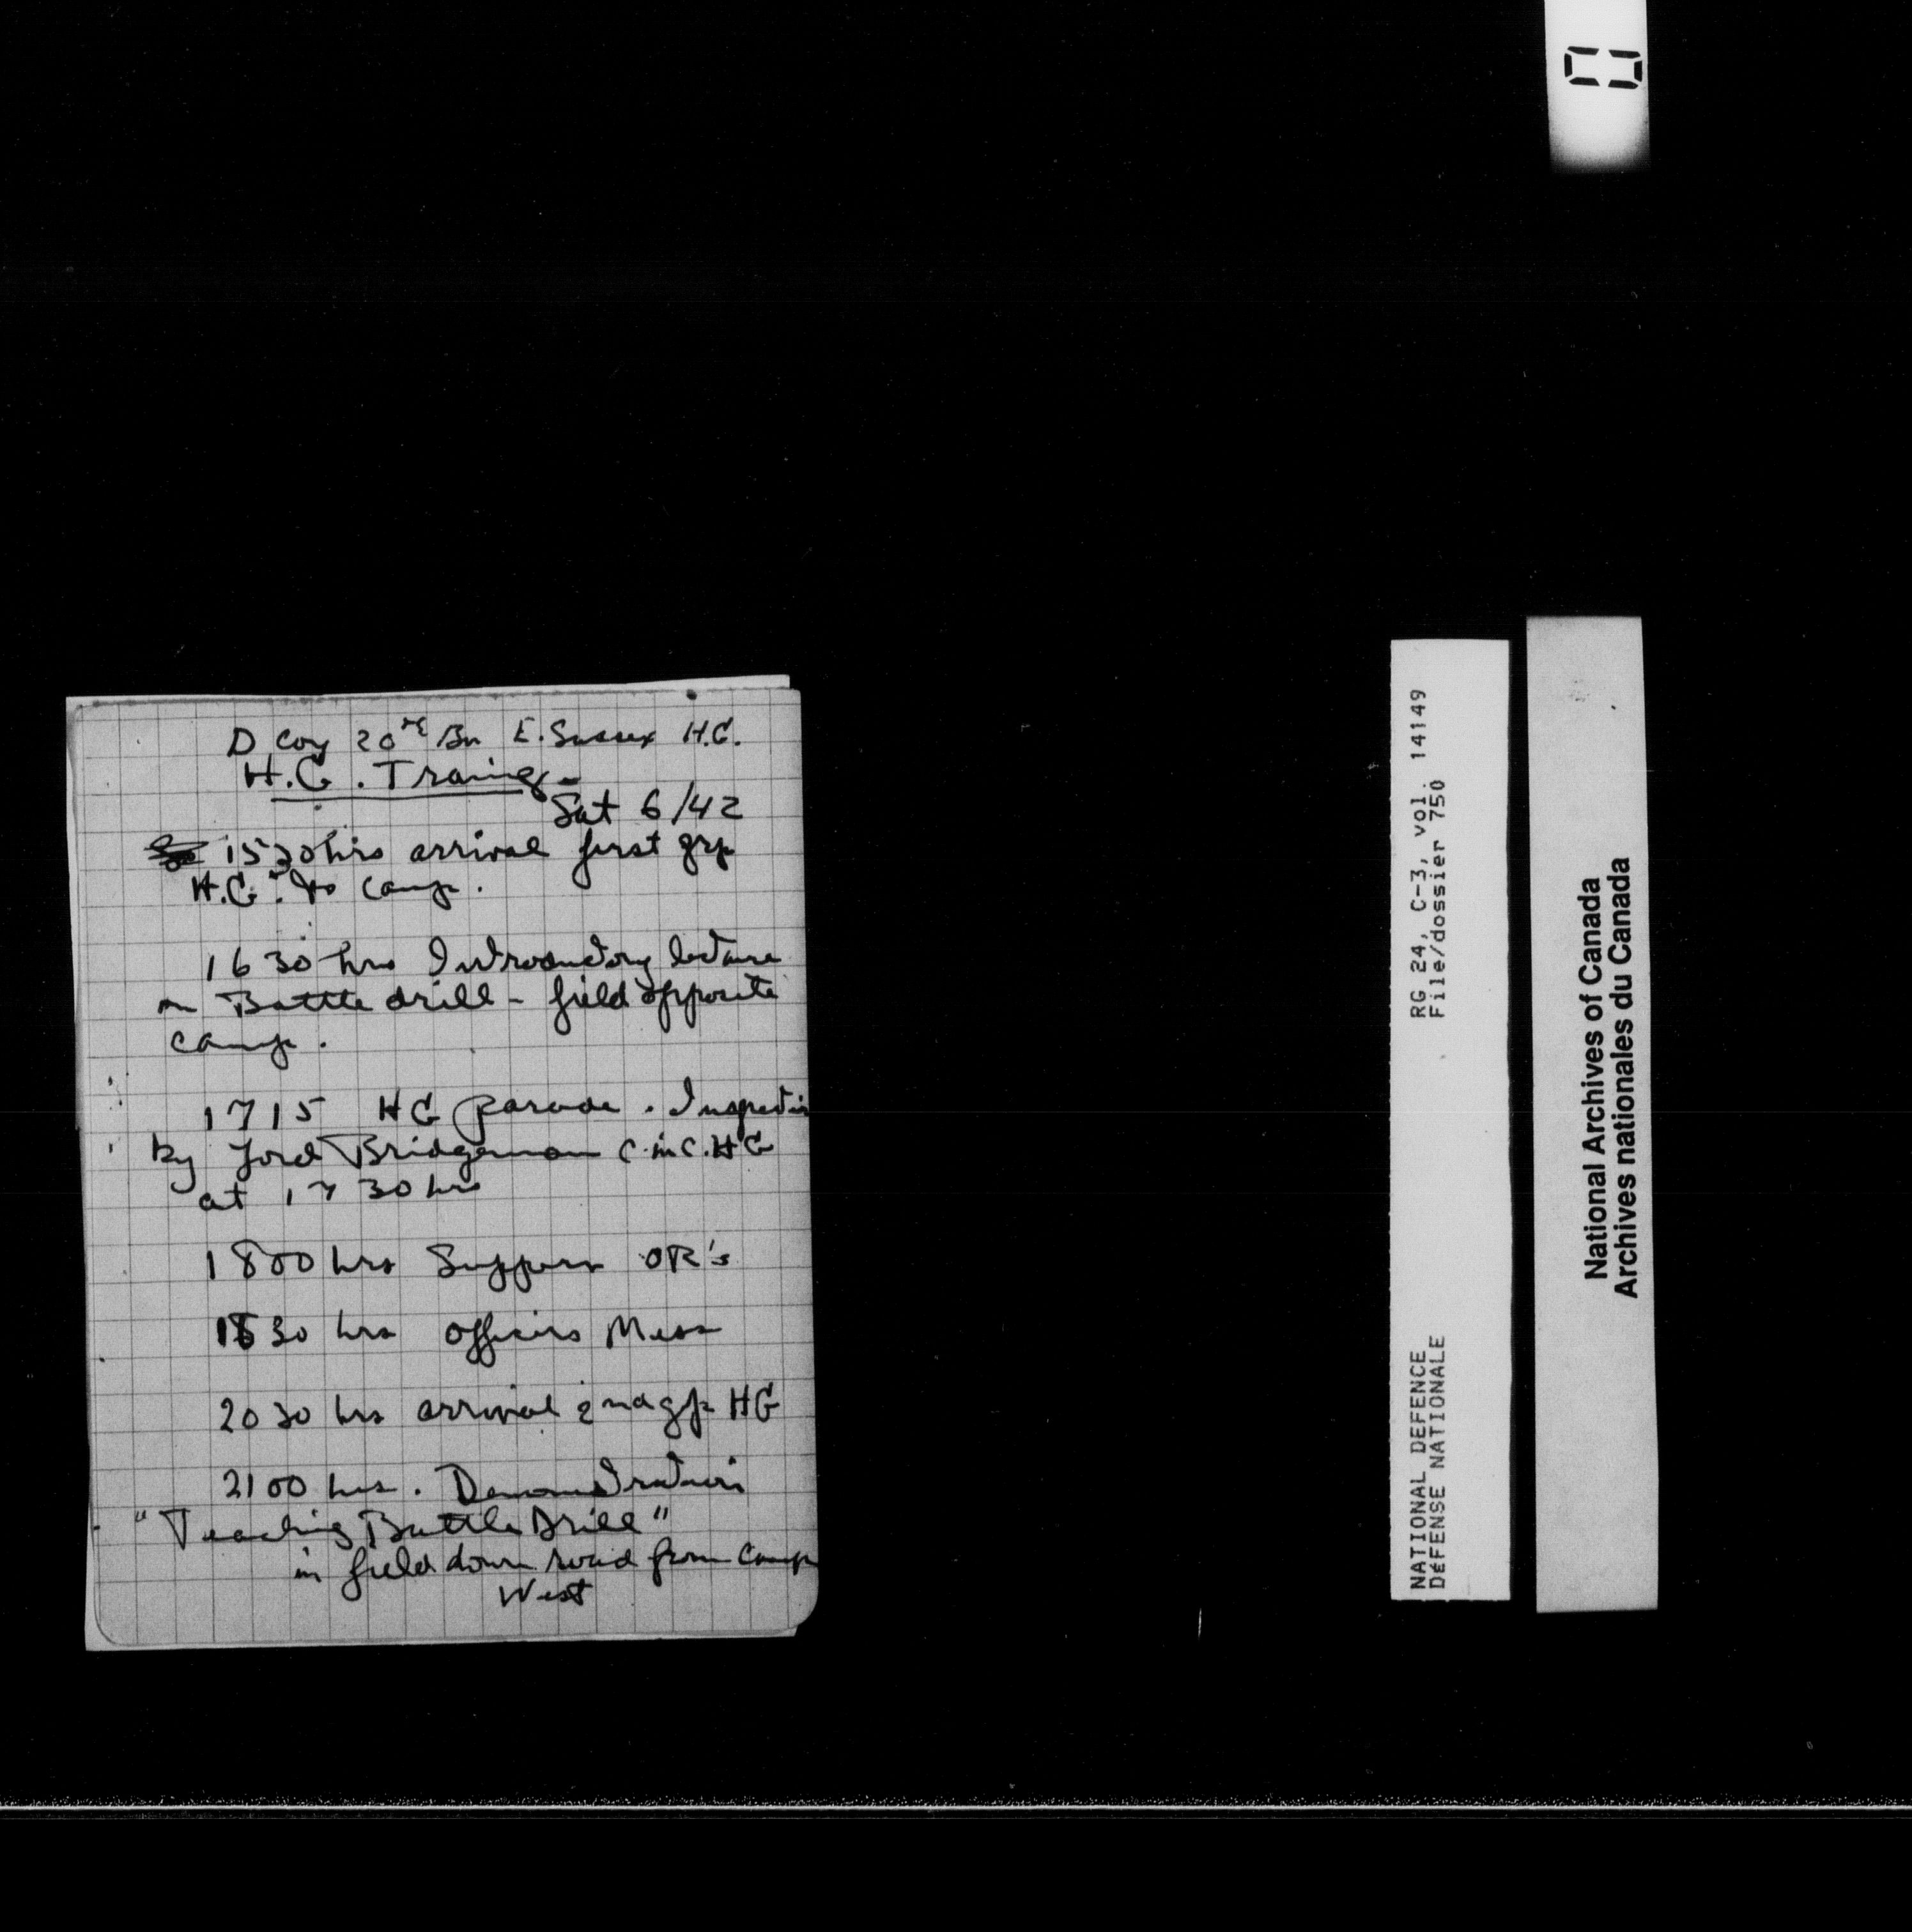 D Coy 20th Bn E. Sussex H.G.
H.G. Traing -
Sat 6/42
1530 hrs arrival first grp
H.G. to camp.
1630 hrs Introductory lecture
on Battle drill - field opposite
camp.
1715 HG parade. Inspection
by Lord Bridgeman C.inC. HG
at 1730 hrs
1800 hrs Suppers OR's
1830 hrs officers Mess
2030 hrs arrival 2nd gp HG
2100 hrs. Demonstration
"Teaching Battle Drill"
in field down road from camp
West
RG 24, C-3, vol. 14149
File/dossier 750
NATIONAL DEFENCE
DéFENSE NATIONALE
National Archives of Canada
Archives nationales du Canada